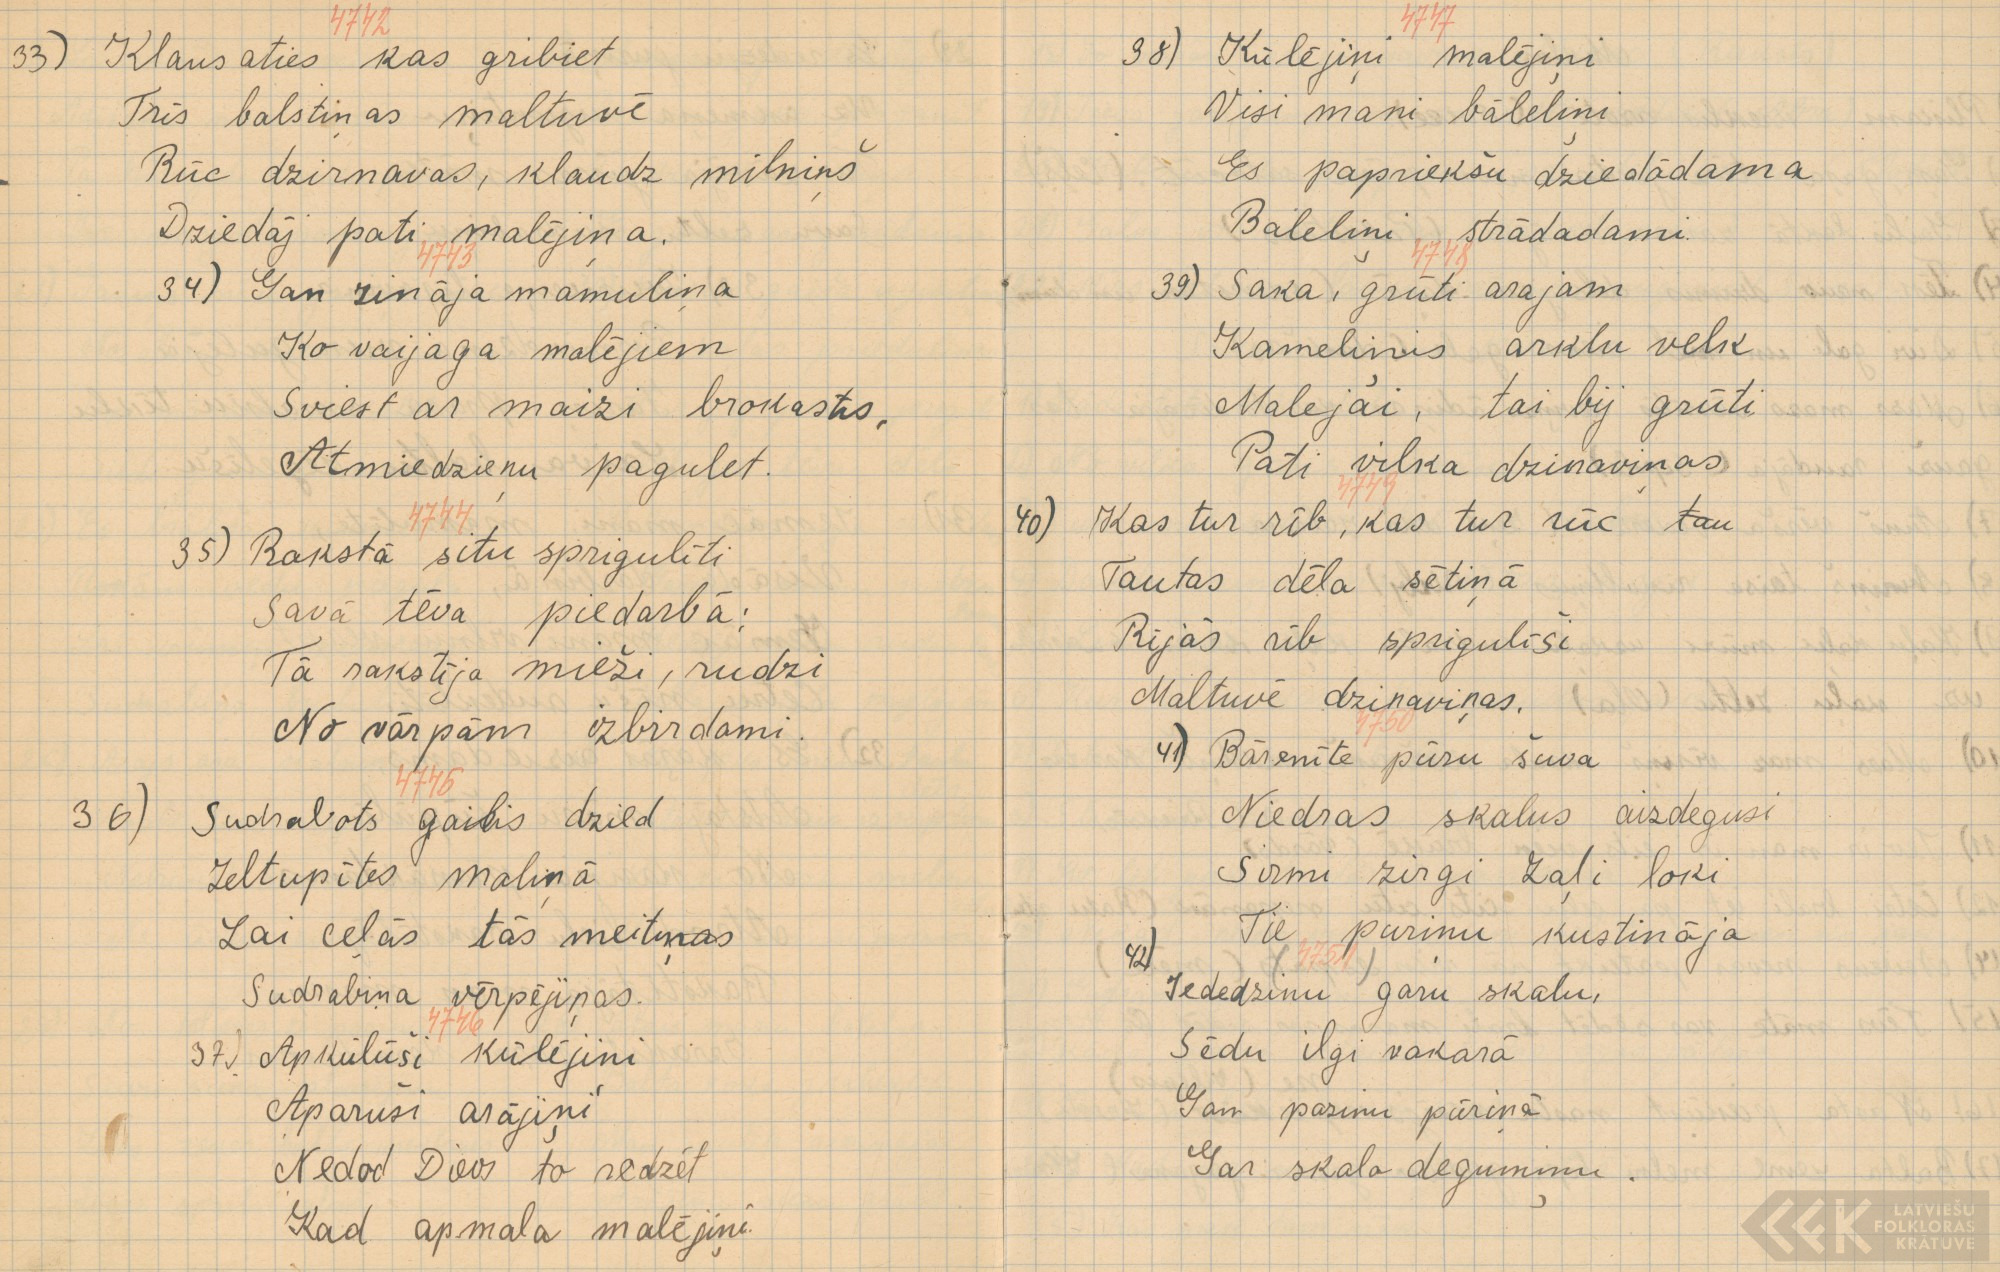 4742
33) Klausaties kas gribiet
Trīs balstiņas maltuvē
Rūc dzirnavas, klaudz milniņš
Dziedāj pati malējiņa.
4743
34) Gan zināja māmuliņa
Ko vaijaga malējiem
Sviest ar maizi brokastis,
Atmiedzieņu pagulet.
4744
35) Rakstā situ spriguliti
Savā tēva piedarbā;
Tā rakstīja mieži, rudzi
No vārpām izbirdami.
4745
36) Sudrabots gailis dzied
Zeltupītes maliņā
Lai ceļās tās meitiņas
Sudrabiņa vērpējiņas.
4746
37.) Apkūlūši kūlējiņi
Aparuši arājiņi
Nedod Dievs to redzēt
Kad apmala malējiņi.
4747
38) Kūlējiņi malējiņi
Visi mani bāleliņi
Es papriekšu dziedādama
Bāleliņi strādadami.
4748
39) Saka, grūti arajam
Kameliņis arklu velk
Malejai, tai bij grūti
Pati vilka dzinaviņas
4749
40) Kas tur rīb, kas tur rūc tau
Tautas dēla sētiņā
Rijās rīb spriguliši
Maltuvē dzinaviņas.
4750
41) Bārenīte pūru šuva
Niedras skalus aizdegusi
Sirmi zirgi zaļi loki
Tie puriņu kustināja
4751
42) Iededzinu gaŗu skalu,
Sēdu ilgi vakarā
Gan pazinu pūriņā
Gar skala degumiņu.
LATVIEŠU
FOLKLORAS
KRĀTUVE